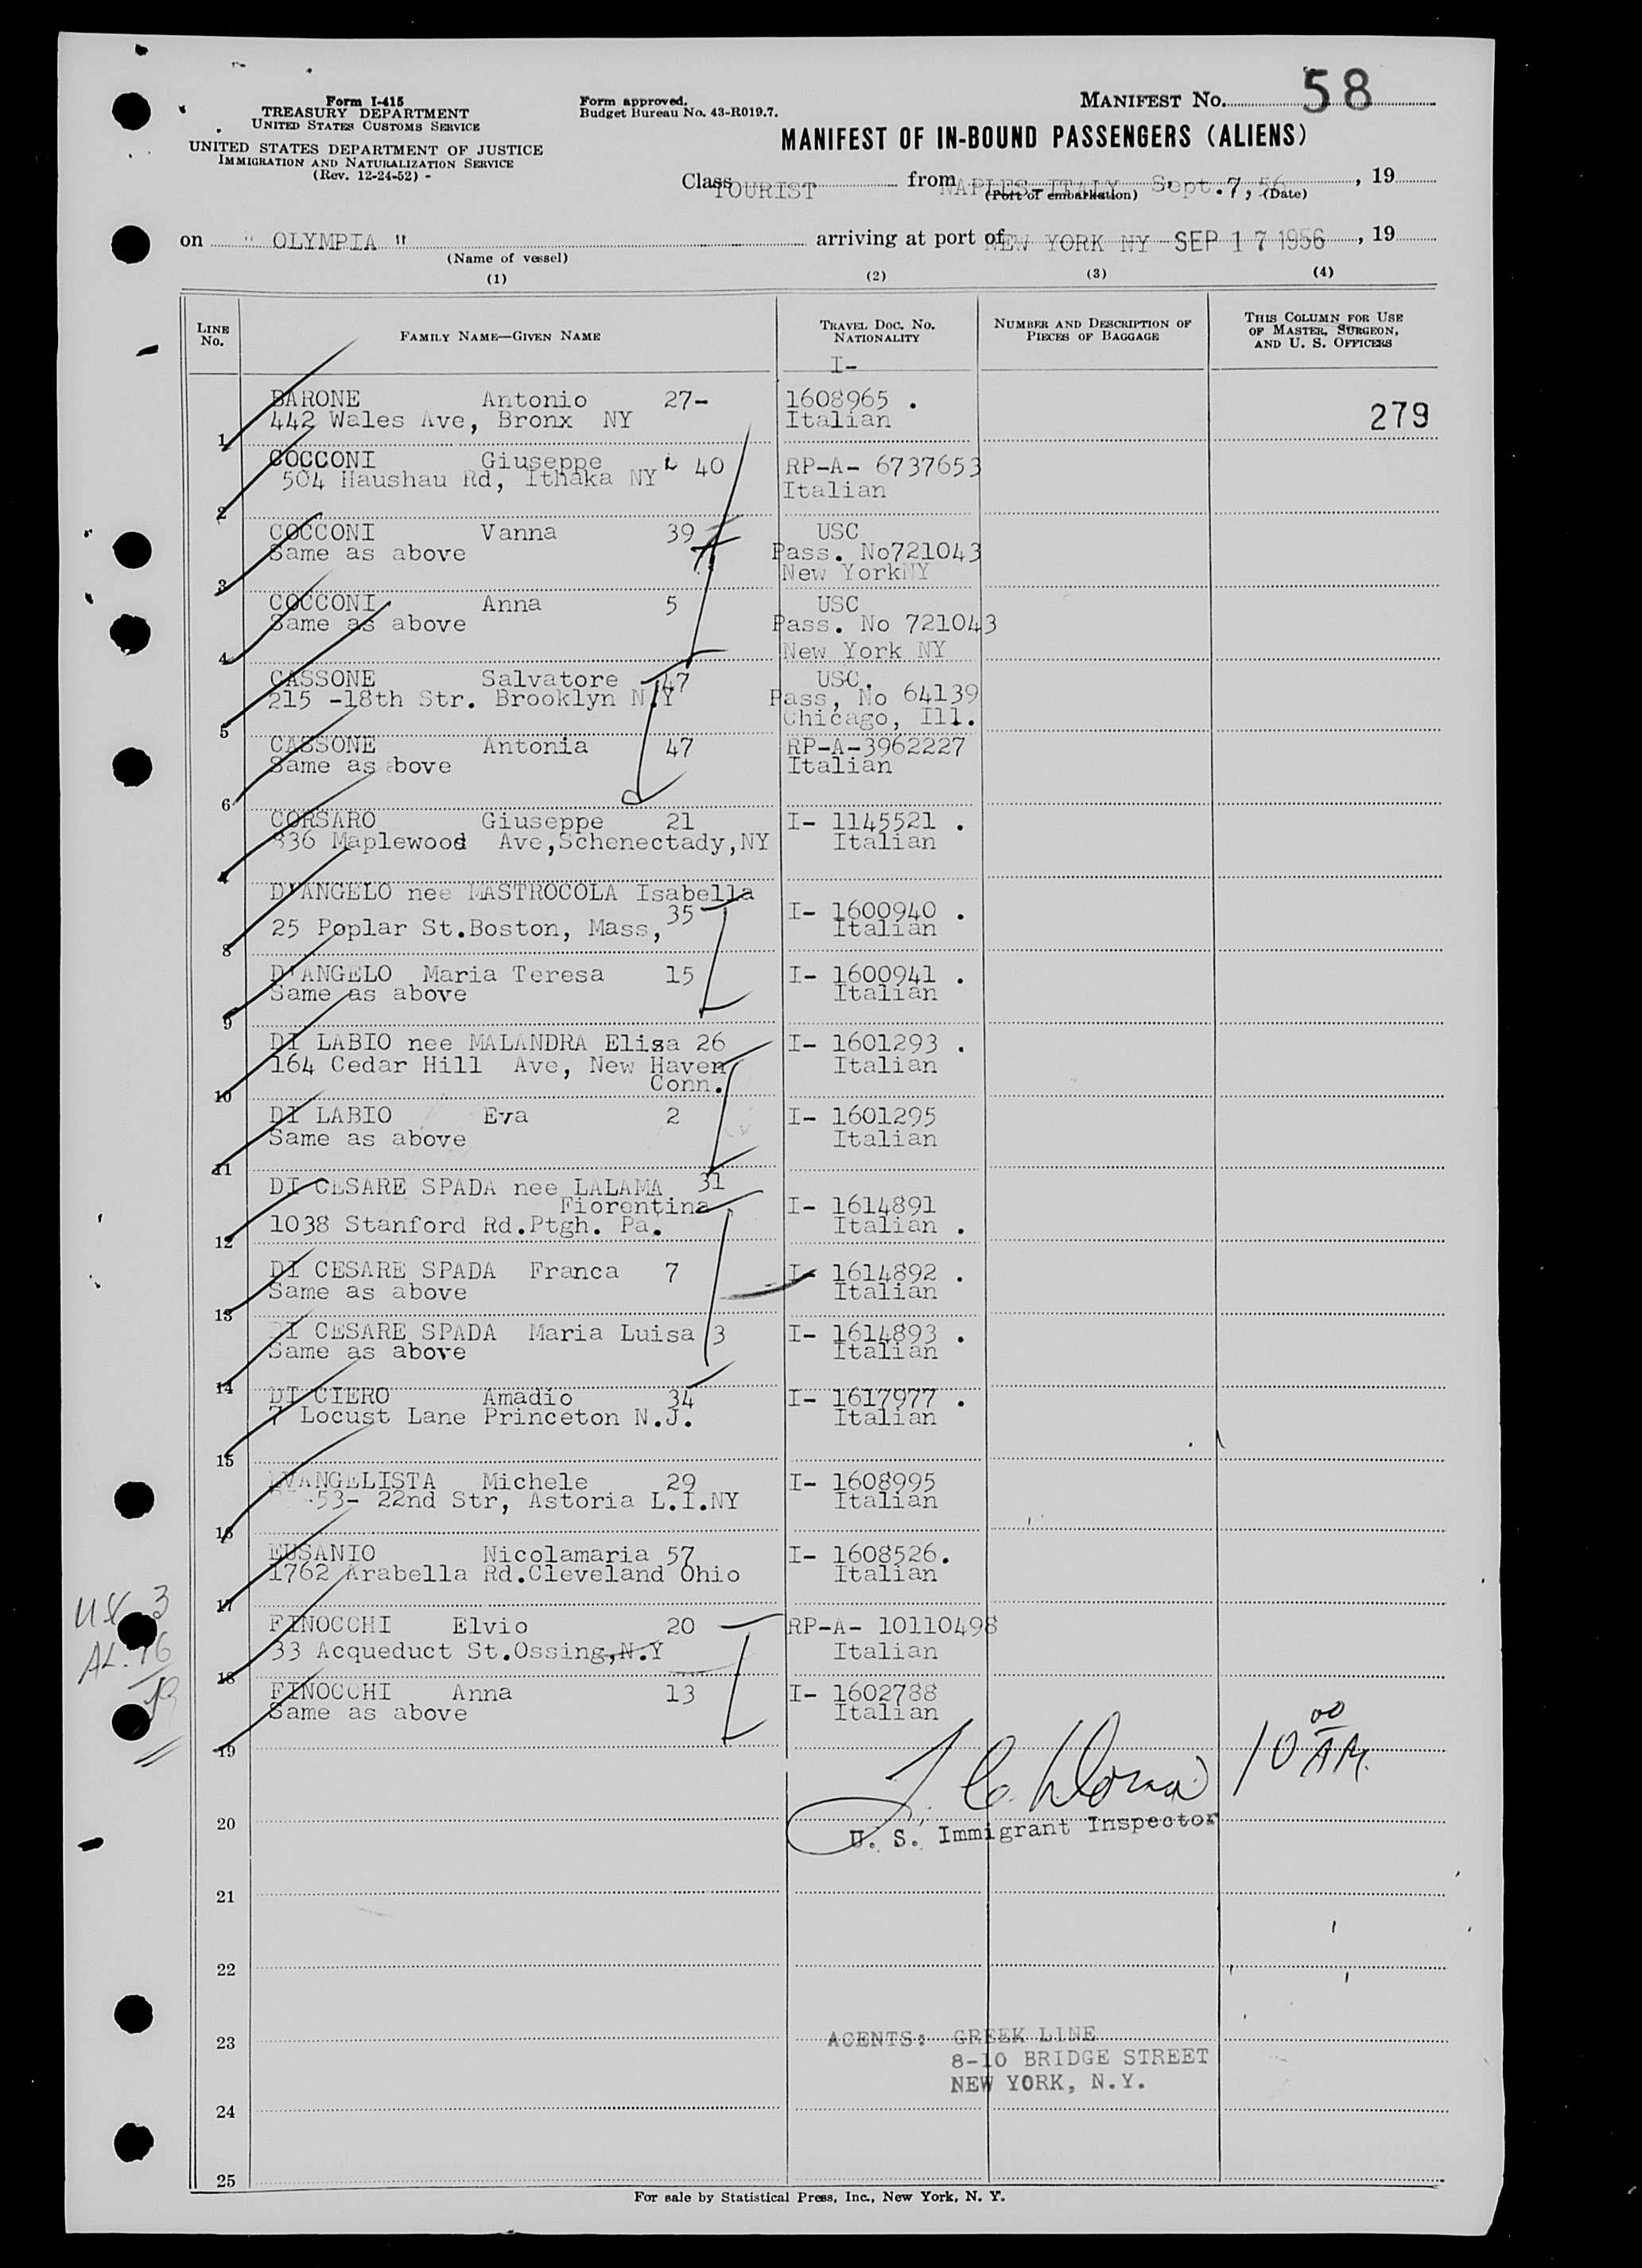 Form I-415
TREASURY DEPARTMENT
UNITED STATES CUSTOMS SERVICE
UNITED STATES DEPARTMENT OF JUSTICE
IMMIGRATION AND NATURALIZATION SERVICE
(Rev. 12-24-52) -
Form approved.
Budget Bureau No. 43-R019.7.
MANIFEST No. 58
MANIFEST OF IN-BOUND PASSENGERS (ALIENS)
Class TOURIST from NAPLES-ITALY Sept.7, 56, 19
(Port of embarkation) (Date)
on " OLYMPIA " arriving at port of NEW YORK NY SEP 17 1956, 19
(Name of vessel)
(1) (2) (3) (4)
LINE No. FAMILY NAME—GIVEN NAME TRAVEL DOC. NO. NATIONALITY NUMBER AND DESCRIPTION OF PIECES OF BAGGAGE THIS COLUMN FOR USE OF MASTER, SURGEON, AND U. S. OFFICERS
I-
BARONE Antonio 27- 1608965 .
442 Wales Ave, Bronx NY Italian 279
1
COCCONI Giuseppe 40 RP-A- 6737653
504 Haushau Rd, Ithaka NY Italian
2
COCCONI Vanna 39 USC
Same as above Pass. No721043
New YorkNY
3
COCCONI Anna 5 USC
Same as above Pass. No 721043
New York NY
4
CASSONE Salvatore 47 USC.
215 -18th Str. Brooklyn N.Y Pass, No 64139
Chicago, Ill.
5
CASSONE Antonia 47 RP-A-3962227
Same as above Italian
6
CORSARO Giuseppe 21 I- 1145521 .
836 Maplewood Ave,Schenectady,NY Italian
D'ANGELO nee MASTROCOLA Isabella
35 I- 1600940 .
25 Poplar St.Boston, Mass, Italian
8
D'ANGELO Maria Teresa 15 I- 1600941 .
Same as above Italian
9
DI LABIO nee MALANDRA Elisa 26 I- 1601293 .
164 Cedar Hill Ave, New Haven Italian
Conn.
10
DI LABIO Eva 2 I- 1601295
Same as above Italian
11
DI CESARE SPADA nee LALAMA 31
Fiorentina I- 1614891
1038 Stanford Rd.Ptgh. Pa. Italian .
12
DI CESARE SPADA Franca 7 I- 1614892 .
Same as above Italian
13
DI CESARE SPADA Maria Luisa 3 I- 1614893 .
Same as above Italian
14
DI CIERO Amadio 34 I- 1617977 .
7 Locust Lane Princeton N.J. Italian
15
EVANGELISTA Michele 29 I- 1608995
-53- 22nd Str, Astoria L.I.NY Italian
16
EUSANIO Nicolamaria 57 I- 1608526.
1762 Arabella Rd.Cleveland Ohio Italian
17
FINOCCHI Elvio 20 RP-A- 10110498
33 Acqueduct St.Ossing,N.Y Italian
18
FINOCCHI Anna 13 I- 1602788
Same as above Italian
19
10 00 AM.
20
U. S. Immigrant Inspector
21
22
23
AGENTS: GREEK LINE
8-10 BRIDGE STREET
NEW YORK, N.Y.
24
25
For sale by Statistical Press, Inc., New York, N. Y.